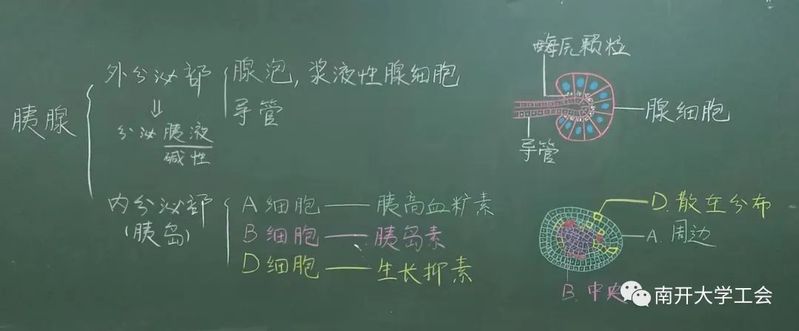 胰腺
外分泌部
腺泡,浆液性腺细胞
导管
分泌胰液
碱性
内分泌部
(胰岛)
A细胞——胰高血糖素
B细胞——胰岛素
D细胞——生长抑素
酶原颗粒
腺细胞
导管
D.散在分布
A.周边
B.中央
南开大学工会